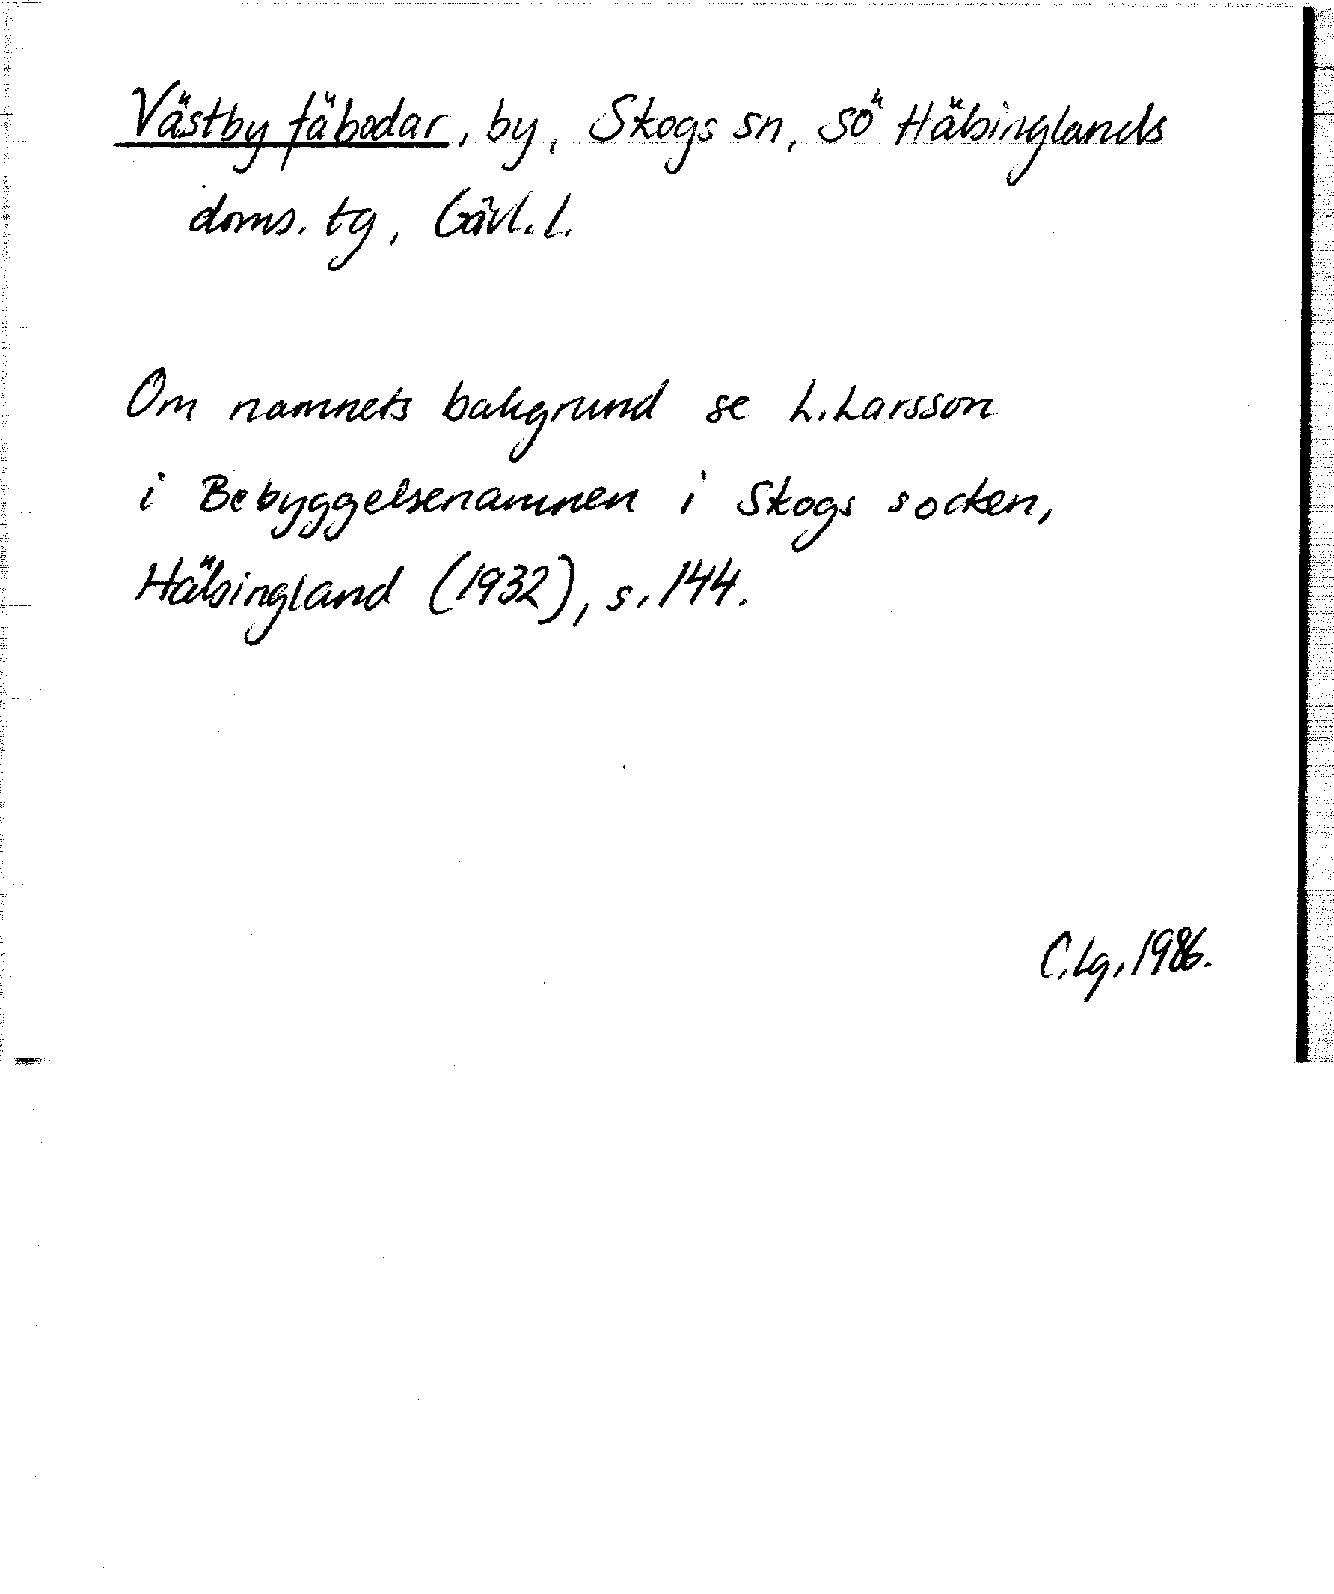 Västby fäbodar, by, Skogs sn, SÖ Hälsinglands
doms. tg, Gävl. l.
Om namnets bakgrund se L. Larsson
i Bebyggelsenamnen i Skogs socken,
Hälsingland (1932), s. 144.
C. Lg. 1986.